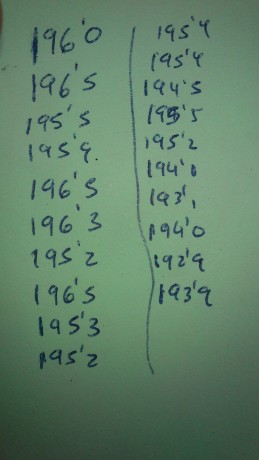 196'0
196'5
195'5
195'9.
196'5
196'3
195'2
196'5
195'3
195'2
195'4
195'4
194'5
195'5
195'2
194'1
193'1
194'0
192'9
193'9